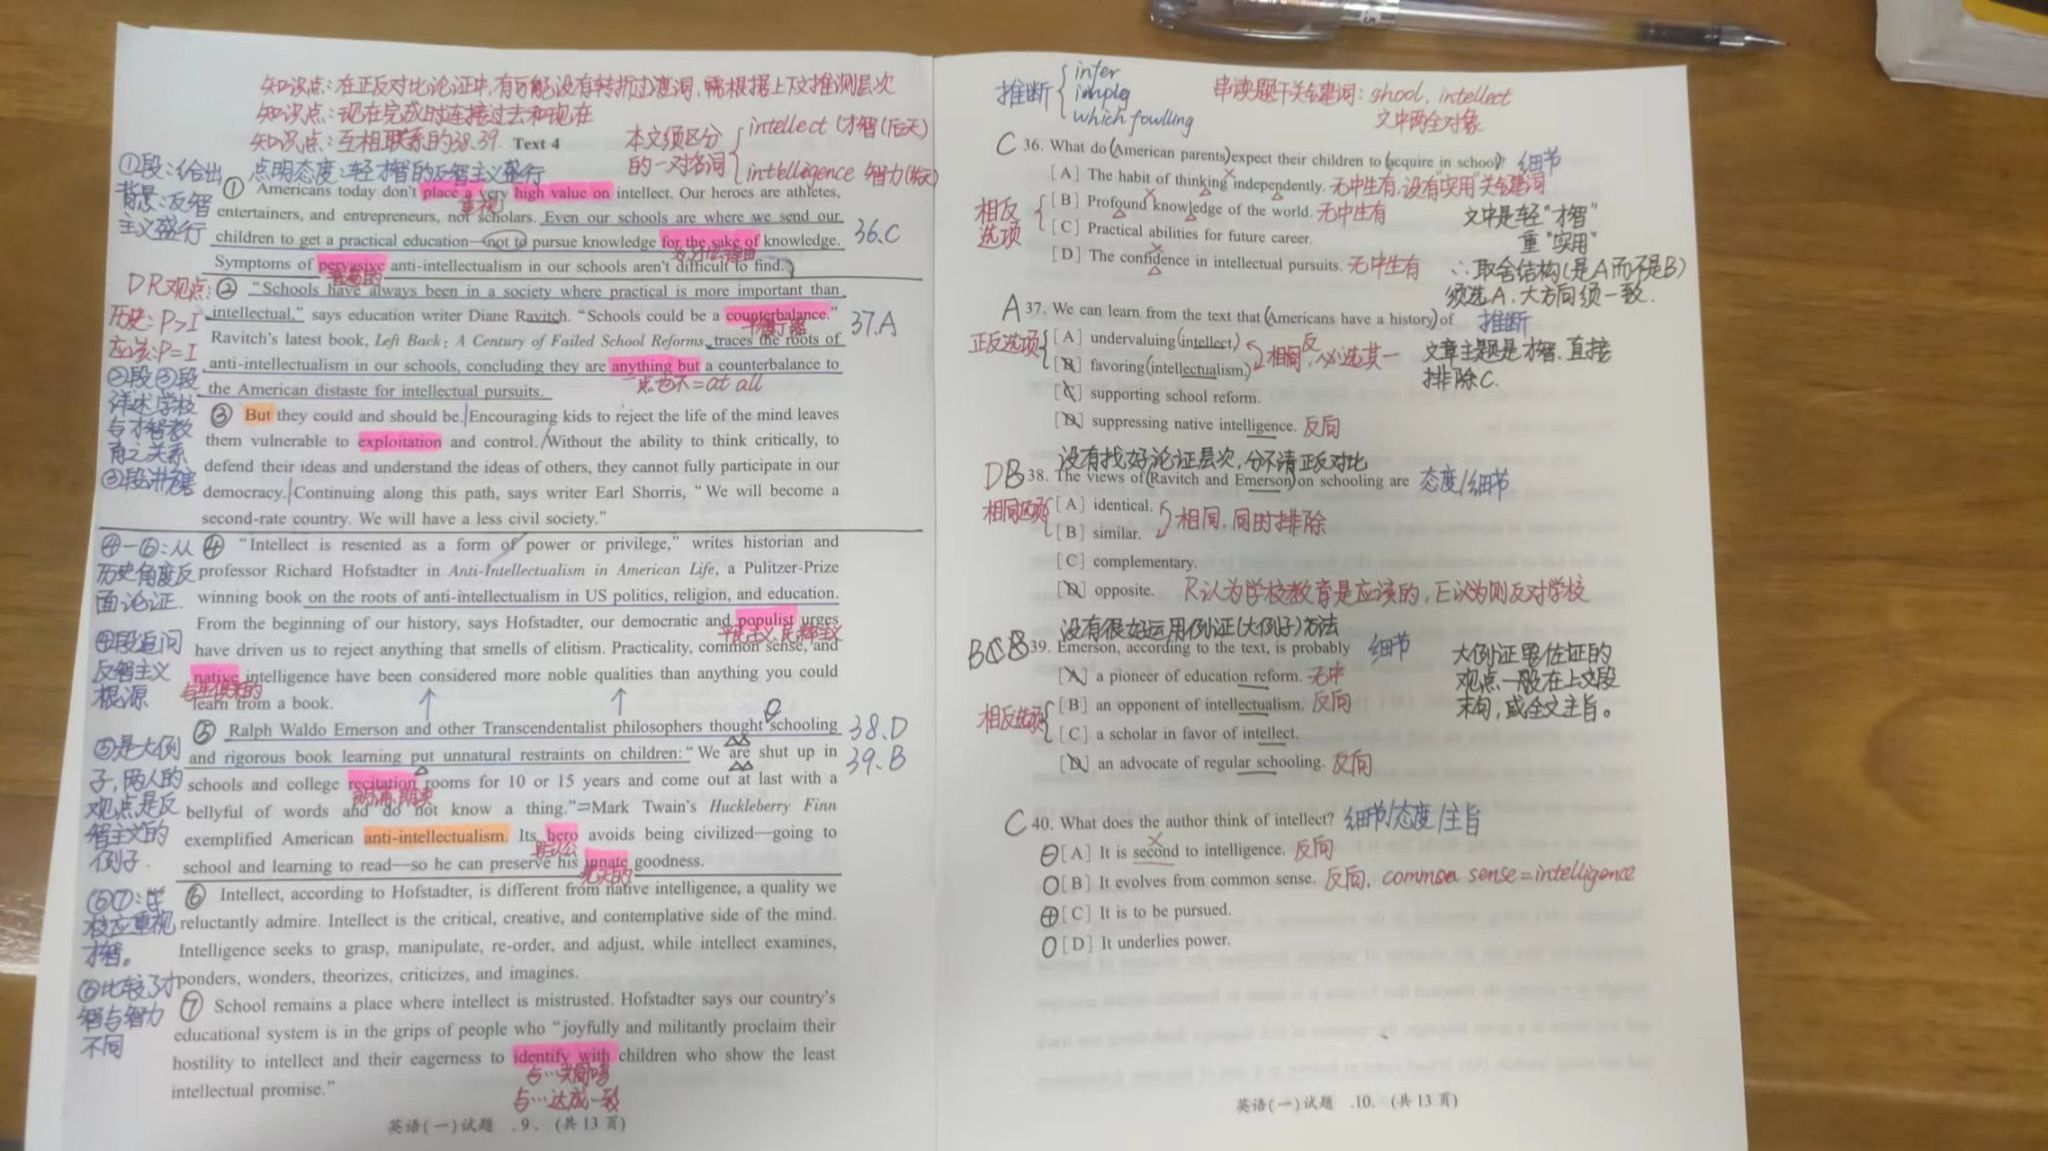 知识点:在正反对比论证中,有可能没有转折过渡词,需根据上下文推测层次
知识点:现在完成时连接过去和现在
知识点:互相联系的38.39.
Text 4
本文须区分的一对名词
intellect (才智(后天)
intelligence 智力(先天)
①段:给出背景:反智主义盛行
点明态度:轻才智的反智主义盛行
① Americans today don't place a very high value on intellect. Our heroes are athletes,
重视
entertainers, and entrepreneurs, not scholars. Even our schools are where we send our
children to get a practical education—not to pursue knowledge for the sake of knowledge.
36.C
Symptoms of pervasive anti-intellectualism in our schools aren't difficult to find.
普遍的
DR观点:
② "Schools have always been in a society where practical is more important than
历史:P>I
intellectual," says education writer Diane Ravitch. "Schools could be a counterbalance."
37.A
应当:P=I
Ravitch's latest book, Left Back: A Century of Failed School Reforms, traces the roots of
anti-intellectualism in our schools, concluding they are anything but a counterbalance to
一点也不=at all
the American distaste for intellectual pursuits.
②段③段详述学校与才智教育之关系
③ But they could and should be. Encouraging kids to reject the life of the mind leaves
them vulnerable to exploitation and control. Without the ability to think critically, to
defend their ideas and understand the ideas of others, they cannot fully participate in our
democracy. Continuing along this path, says writer Earl Shorris, "We will become a
second-rate country. We will have a less civil society."
④-⑤:从历史角度反面论证.
④ "Intellect is resented as a form of power or privilege," writes historian and
professor Richard Hofstadter in Anti-Intellectualism in American Life, a Pulitzer-Prize
winning book on the roots of anti-intellectualism in US politics, religion, and education.
From the beginning of our history, says Hofstadter, our democratic and populist urges
have driven us to reject anything that smells of elitism. Practicality, common sense, and
native intelligence have been considered more noble qualities than anything you could
与生俱来的
learn from a book.
④段追问反智主义根源
⑤ Ralph Waldo Emerson and other Transcendentalist philosophers thought schooling
38.D
and rigorous book learning put unnatural restraints on children: "We are shut up in
39.B
schools and college recitation rooms for 10 or 15 years and come out at last with a
bellyful of words and do not know a thing." Mark Twain's Huckleberry Finn
exemplified American anti-intellectualism. Its hero avoids being civilized—going to
主人公
school and learning to read—so he can preserve his innate goodness.
先天的
⑤是大例子,两人的观点是反智主义的例子.
⑥⑦:学校应重视才智。
⑥ Intellect, according to Hofstadter, is different from native intelligence, a quality we
reluctantly admire. Intellect is the critical, creative, and contemplative side of the mind.
Intelligence seeks to grasp, manipulate, re-order, and adjust, while intellect examines,
ponders, wonders, theorizes, criticizes, and imagines.
⑥比较了才智与智力不同
⑦ School remains a place where intellect is mistrusted. Hofstadter says our country's
educational system is in the grips of people who "joyfully and militantly proclaim their
hostility to intellect and their eagerness to identify with children who show the least
与…共同
intellectual promise."
与…达成一致
英语(一)试题 .9. (共13页)
推断
infer
imply
which fowlling
串读题干关键词: shool, intellect
文中两全对象
C 36. What do (American parents) expect their children to (acquire in school)? 细节
[A] The habit of thinking independently. 无中生有,没有"实用"关键词
[B] Profound knowledge of the world. 无中生有
[C] Practical abilities for future career.
[D] The confidence in intellectual pursuits. 无中生有
相反选项
文中是轻"才智"
重"实用"
∴取舍结构(是A而不是B)
须选A,大方向须一致.
A 37. We can learn from the text that (Americans have a history) of 推断
正反选项
[A] undervaluing (intellect).
[B] favoring (intellectualism).
相反,必选其一
[C] supporting school reform.
[D] suppressing native intelligence. 反向
文章主题是才智.直接
排除C.
没有找好论证层次,分不清正反对比
DB 38. The views of (Ravitch and Emerson) on schooling are 态度/细节
相同选项
[A] identical.
[B] similar.
相同,同时排除
[C] complementary.
[D] opposite. R认为学校教育是应该的,E认为则反对学校
没有很好运用例证(大例子)方法
BCB 39. Emerson, according to the text, is probably 细节
[A] a pioneer of education reform. 无中
[B] an opponent of intellectualism. 反向
[C] a scholar in favor of intellect.
[D] an advocate of regular schooling. 反向
相反选项
大例证要佐证的
观点一般在上文段
末句,或全文主旨。
C 40. What does the author think of intellect? 细节/态度/主旨
[A] It is second to intelligence. 反向
[B] It evolves from common sense. 反向, common sense=intelligence
[C] It is to be pursued.
[D] It underlies power.
英语(一)试题 .10. (共13页)